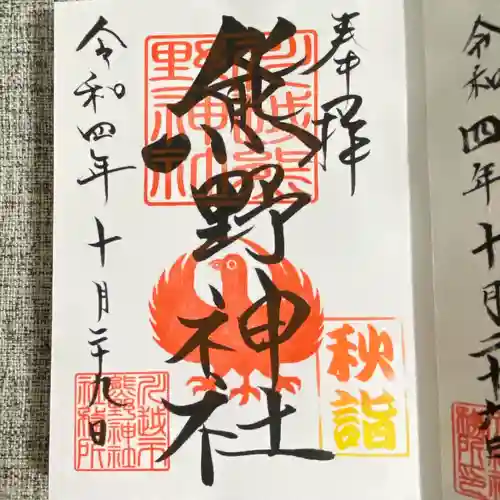 奉拝
熊野神社
川越熊野神社
秋詣
令和四年十月二十九日
川越市
熊野神社
社務所
令和四年十月二十九日